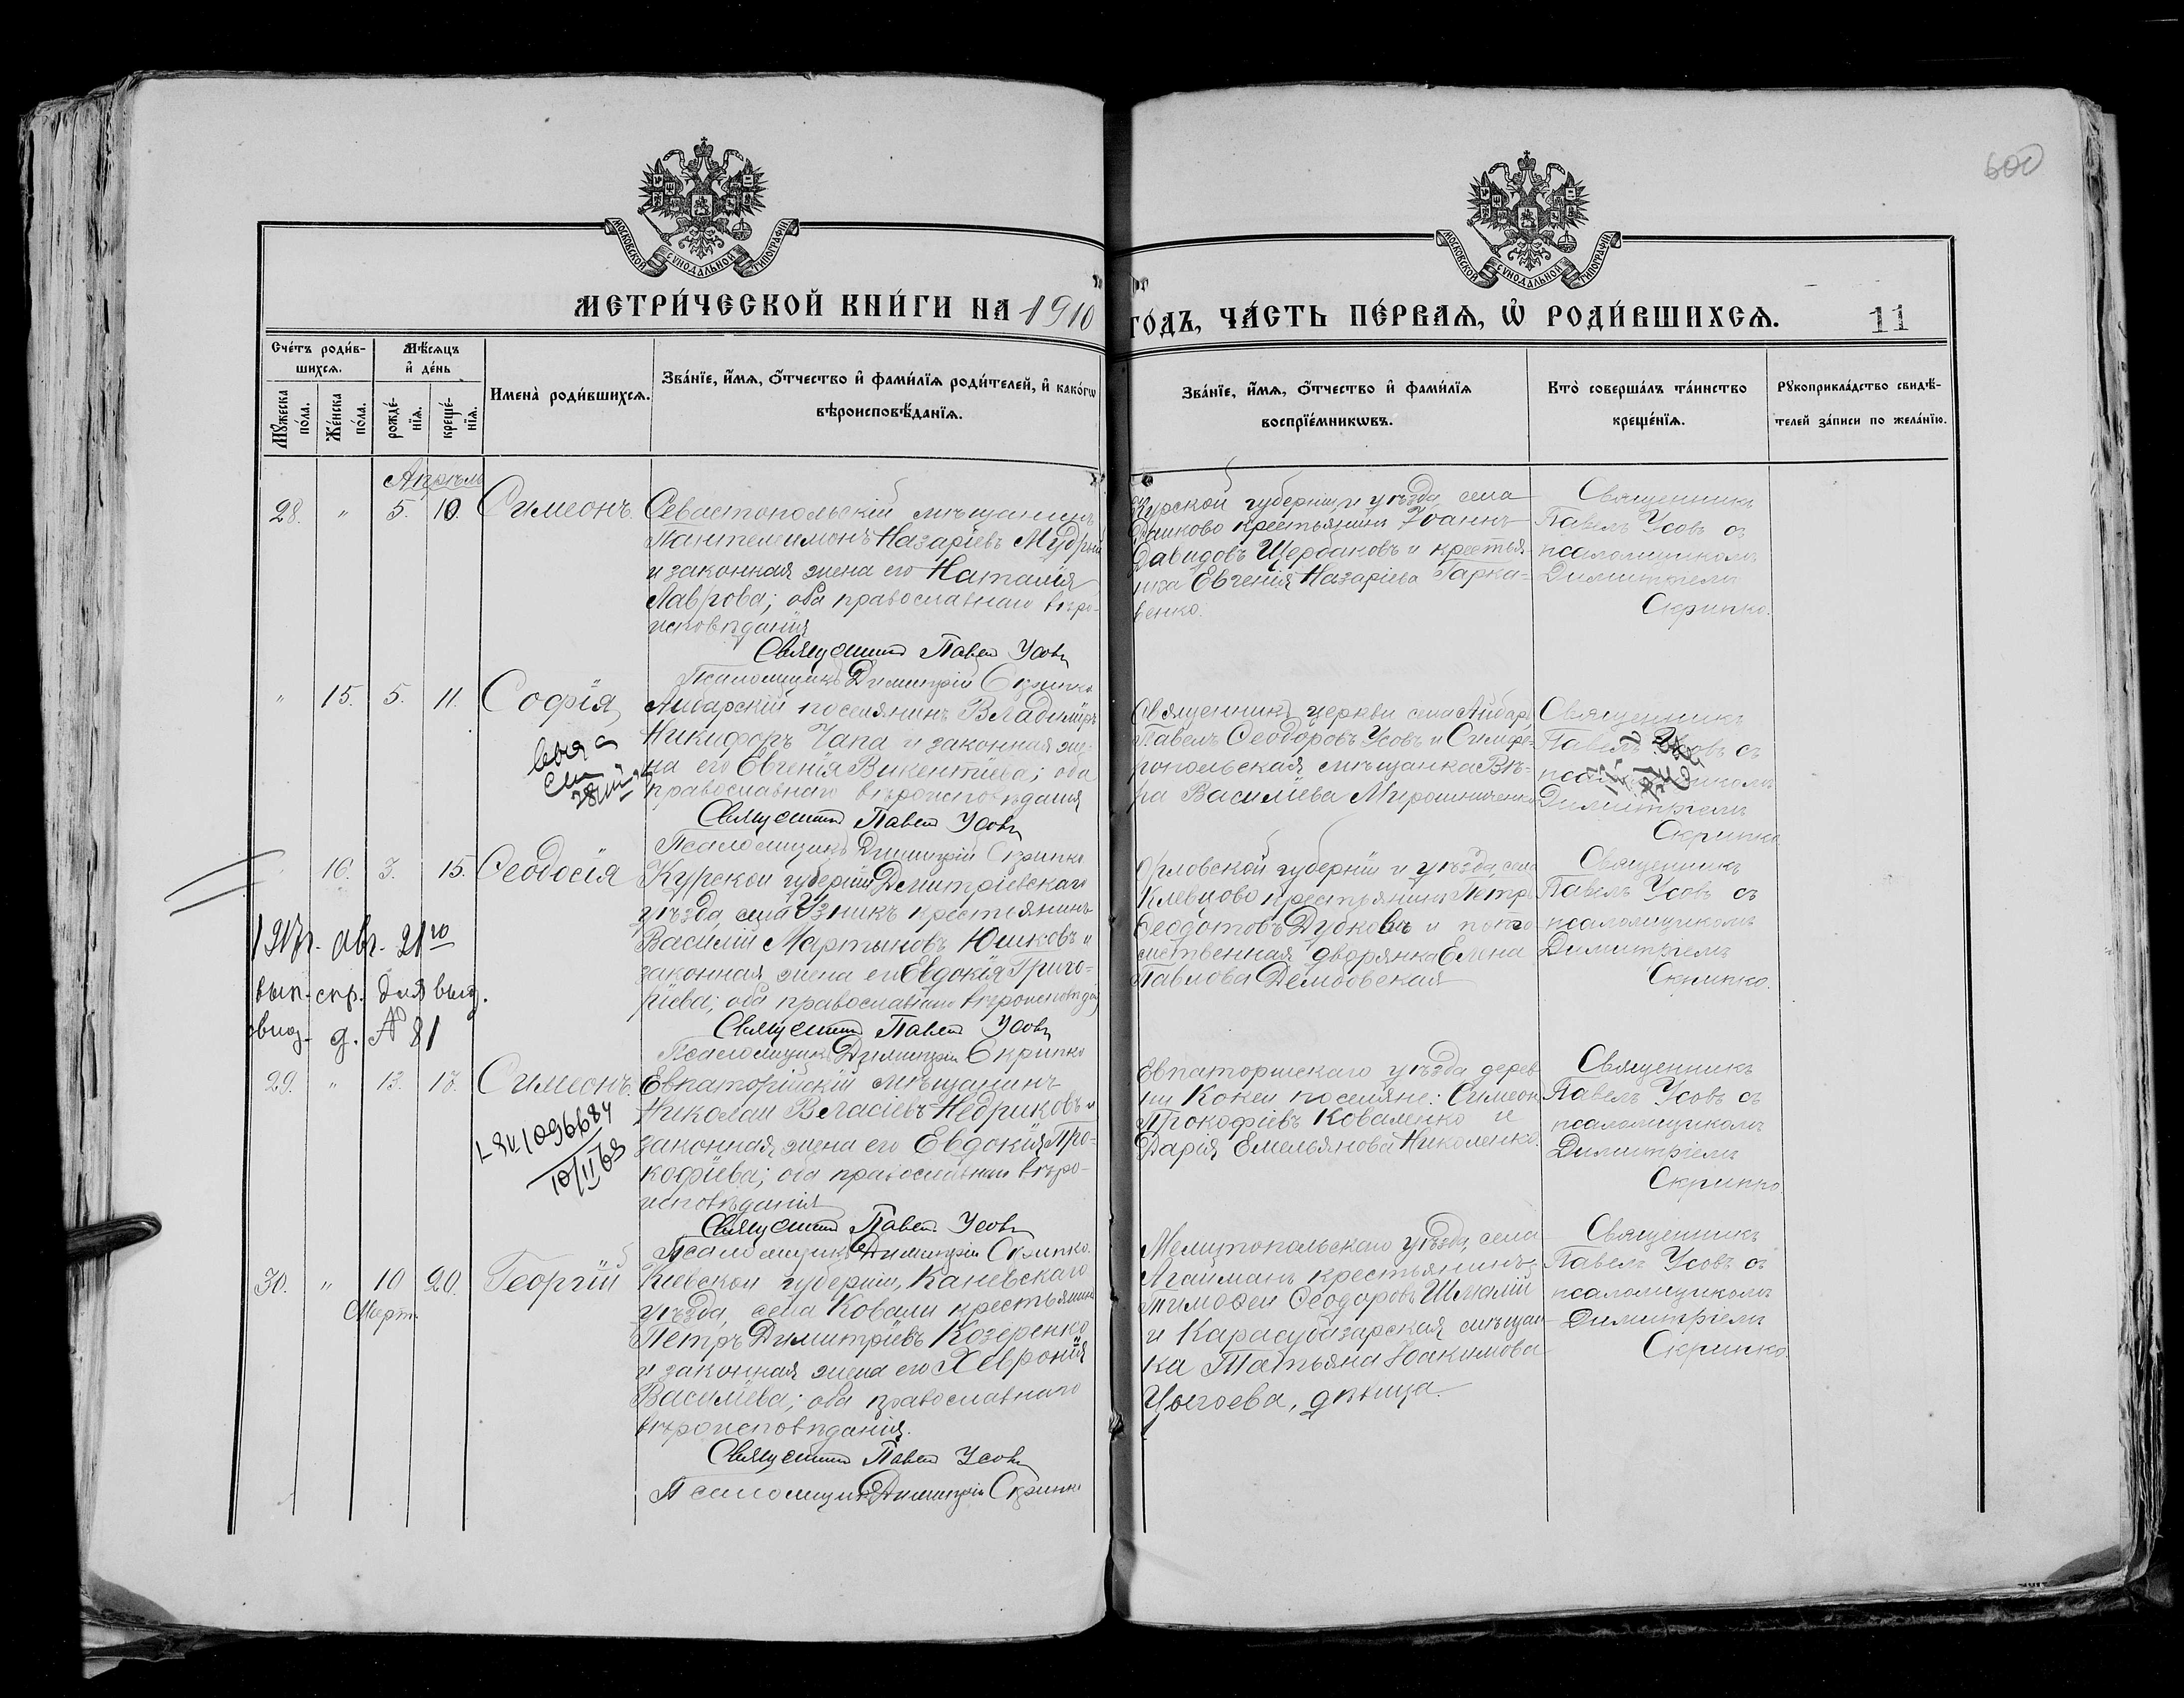 600
МОСКОВСКОЙ СѴНОДАЛЬНОЙ ТИПОГРАФІИ
МОСКОВСКОЙ СѴНОДАЛЬНОЙ ТИПОГРАФІИ
МЕТРИ́ЧЕСКОЙ КНИ́ГИ НА 1910
ГО́ДЪ, ЧА́СТЬ ПЕ́РВАѦ, Ѡ҆ РОДИ́ВШИХСѦ.
11
Сче́тъ роди́в-
шихсѧ.
Мꙋ́жеска
по́ла.
Же́нска
по́ла.
Мѣ́сѧцъ
и҆ де́нь
рожде́-
нїѧ.
креще́-
нїѧ.
Имена̀ роди́вшихсѧ.
Зва́нїе, и҆́мѧ, ѻ҆́тчество и҆ фами́лїѧ роди́телей, и҆ како́гѡ
вѣроисповѣ́данїѧ.
Зва́нїе, и҆́мѧ, ѻ҆́тчество и҆ фами́лїѧ
воспрїе́мникѡвъ.
Кто̀ соверша́лъ та́инство
креще́нїѧ.
Рꙋкоприкла́дство свидѣ́-
телей за́писи по жела́нїю.
Апрѣль
28. " 5. 10. Симеонъ.
Севастопольскій мѣщанинъ
Пантелеимонъ Назаріевъ Мудрый
и законная жена его Наталія
Лаврова; оба православнаго вѣро-
исповѣданія
Священникъ Павелъ Усовъ
Псаломщикъ Димитрій Скрипко
Курской губерніи и уѣзда, села
крестьянинъ Іоаннъ
Давидовъ Щербаковъ и крестья-
нка Евгенія Назаріева Гарка-
венко.
Священникъ
Павелъ Усовъ съ
псаломщикомъ
Димитріемъ
Скрипко.
" 15. 5. 11. Софія
Айбарскій поселянинъ Владиміръ
Никифоръ Чапа и законная же-
на его Евгенія Викентіева; оба
православнаго вѣроисповѣданія
Священникъ Павелъ Усовъ
Псаломщикъ Димитрій Скрипко
Священникъ церкви села Айбаръ
Павелъ Ѳеодоровъ Усовъ и Симфе-
ропольская мѣщанка Вѣ-
ра Василіева Мирошниченко
Священникъ
Павелъ Усовъ съ
псаломщикомъ
Димитріемъ
Скрипко
" 16. 3. 15. Ѳеодосія
Курской губерніи Дмитріевскаго
уѣзда, села Узникъ крестьянинъ
Василій Мартыновъ Юшковъ и
законная жена его Евдокія Григо-
ріева; оба православнаго вѣроисповѣда
Священникъ Павелъ Усовъ
Псаломщикъ Димитрій Скрипко
авг. 21го
вып. спр. для выд.
д. № 81
Орловской губерніи и уѣзда, села
Клевцово крестьянинъ Петръ
Ѳеодотовъ Дубковъ и пото
мственная дворянка Елена
Павлова Дембовская
Священникъ
Павелъ Усовъ съ
псаломщикомъ
Димитріемъ
Скрипко.
29. " 13. 18. Симеонъ.
Евпаторійскій мѣщанинъ
Николай Власіевъ Недриковъ и
законная жена его Евдокія Про-
кофіева; оба православнаго вѣро-
исповѣданія
Священникъ Павелъ Усовъ
Псаломщикъ Димитрій Скрипко.
1096684
10/II 68
Евпаторійскаго уѣзда дерев
ни Кокеи поселяне: Симеонъ
Прокофіевъ Коваленко и
Дарія Емельянова Николенко.
Священникъ
Павелъ Усовъ съ
псаломщикомъ
Димитріемъ
Скрипко.
30. " 10 20. Георгій
Мерт.
Кіевской губерніи, Каневскаго
уѣзда, села Ковали крестьянинъ
Петръ Димитріевъ Козеренко
и законная жена его Хевронія
Василіева; оба православнаго
вѣроисповѣданія.
Священникъ Павелъ Усовъ
Псаломщикъ Димитрій Скрипко
Мелитопольскаго уѣзда, села
Агайманъ крестьянинъ
Тимоѳей Ѳеодоровъ Шмалій
и Карасубазарская мѣщан-
ка Татьяна Іоакимова
Цыгоева, дѣвица.
Священникъ
Павелъ Усовъ съ
псаломщикомъ
Димитріемъ
Скрипко.